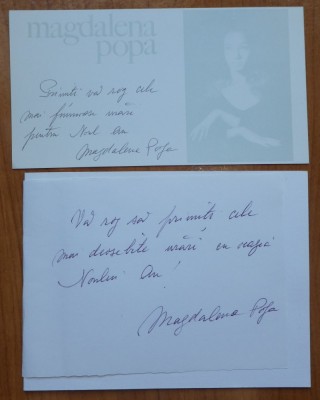 magdalena
popa
Primiți vă rog cele
mai frumoase urări
pentru Noul An
Magdalena Popa
Vă rog să primiți cele
mai deosebite urări cu ocazia
Noului An!
Magdalena Popa